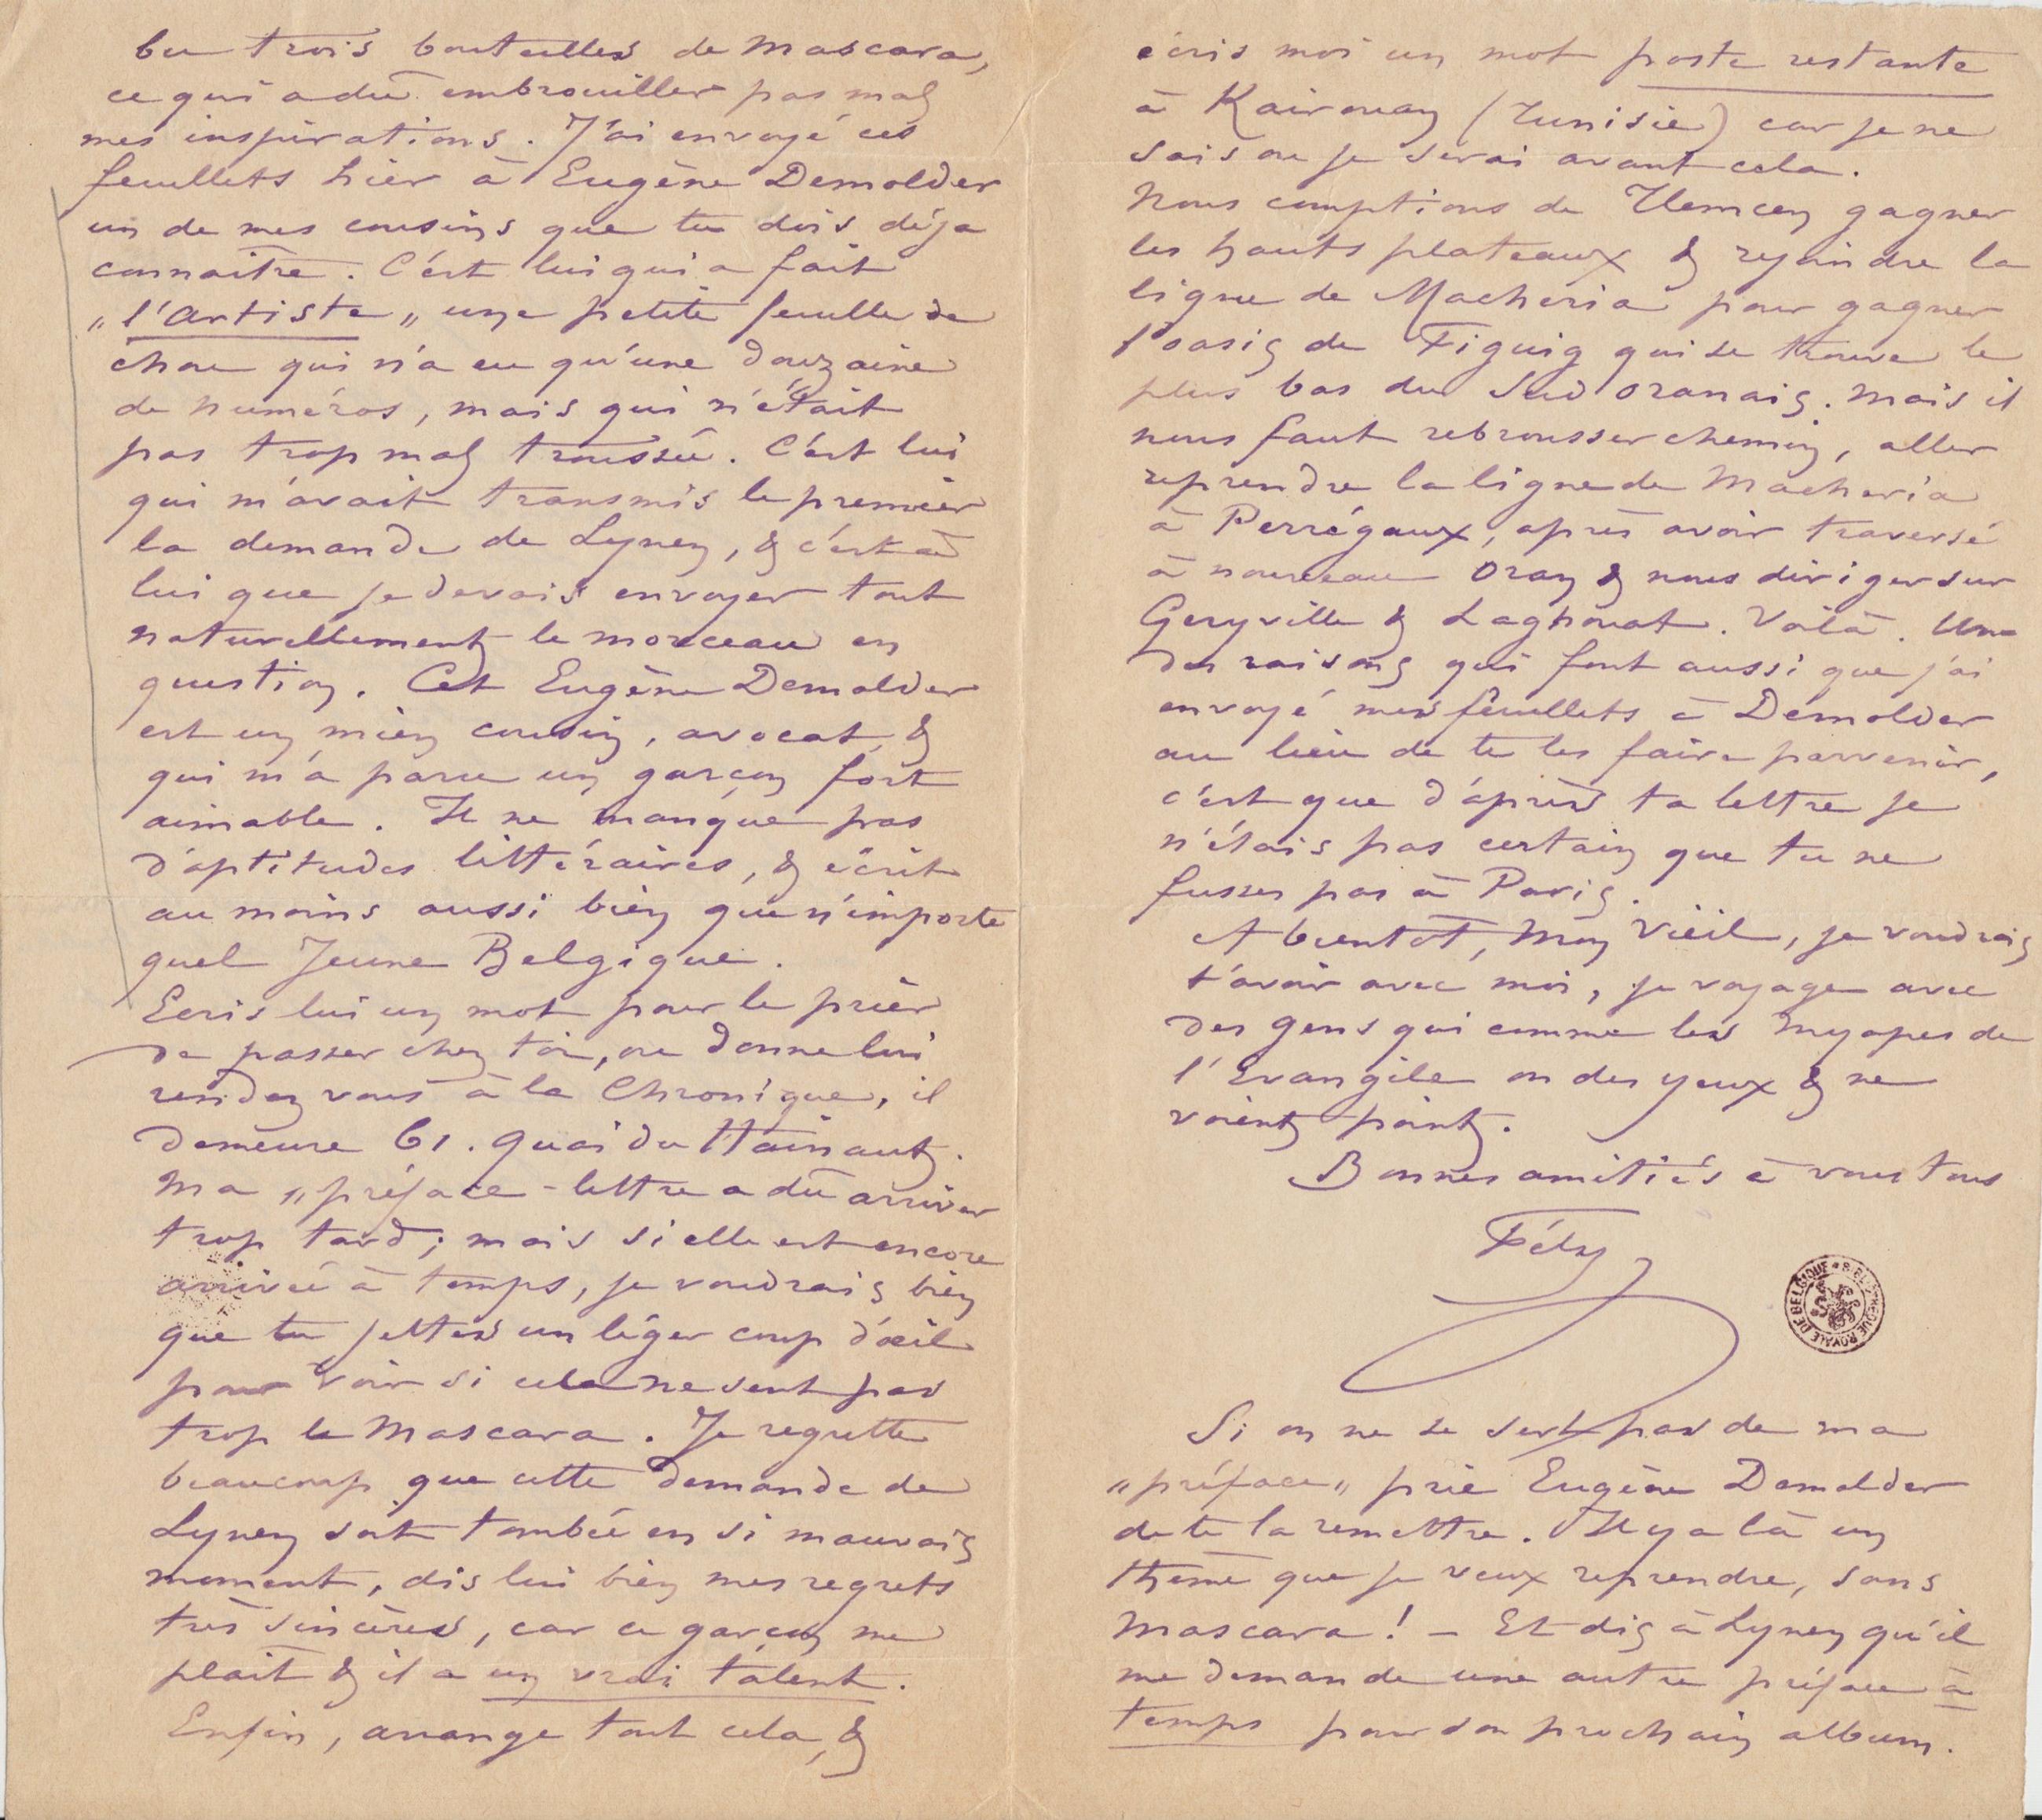 bu trois bouteilles de Mascara,
ce qui a dû embrouiller pas mal
mes inspirations. J'ai envoyé ces
feuillets hier à Eugène Demolder
un de mes cousins que tu dois déja
connaitre. C'est lui qui a fait
„l'Artiste„ une petite feuille de
chou qui n'a eu qu'une douzaine
de numéros, mais qui n'était
pas trop mal troussée. C'est lui
qui m'avait transmis le premier
la demande de Lynen, & c'est à
lui que je devais envoyer tout
naturellement le morceau en
question. Cet Eugène Demolder
est un mien cousin, avocat &
qui m'a paru un garçon fort
aimable. Il ne manque pas
d'aptitudes littéraires, & écrit
au moins aussi bien que n'importe
quel Jeune Belgique.
Ecris lui un mot pour le prier
de passer chez toi, ou donne lui
rendez vous à la Chronique, il
demeure 61. Quai du Hainaut.
Ma „préface-lettre a dû arriver
trop tard; mais si elle est encore
arrivée à temps, je voudrais bien
que tu jettes un léger coup d'œil
pour voir si cela ne sent pas
trop le Mascara. Je regrette
beaucoup que cette demande de
Lynen soit tombée en si mauvais
moment, dis lui bien mes regrets
très sincères, car ce garçon me
plait & il a un vrai talent.
Enfin, arrange tout cela, &
écris moi un mot poste restante
à Kairouan (Tunisie) car je ne
sais ou je serai avant cela.
Nous comptions de Tlemcen gagner
les hauts plateaux & rejoindre la
ligne de Macheria pour gagner
l'oasis de Figuig qui se trouve le
plus bas du Sud oranais. Mais il
nous faut rebrousser chemin, aller
reprendre la ligne de Macheria
à Perrégaux, après avoir traversé
à nouveau Oran & nous diriger sur
Geryville & Laghouat. Voilà. Une
des raisons qui font aussi que j'ai
envoyé mes feuillets à Demolder
au lieu de te les faire parvenir,
c'est que d'après ta lettre je
n'étais pas certain que tu ne
fusses pas à Paris.
A bientôt, mon vieil, je voudrais
t'avoir avec moi, je voyage avec
des gens qui comme les myopes de
l'Evangile on des yeux & ne
voient point.
Bonnes amitiés à vous tous
Fély
BIBLIOTHEQUE ROYALE DE BELGIQUE
Si on ne se sert pas de ma
„préface„ prie Eugène Demolder
de te la remettre. Il y a là un
thème que je veux reprendre, sans
Mascara! — Et dis à Lynen qu'il
me demande une autre préface à
temps pour son prochain album.